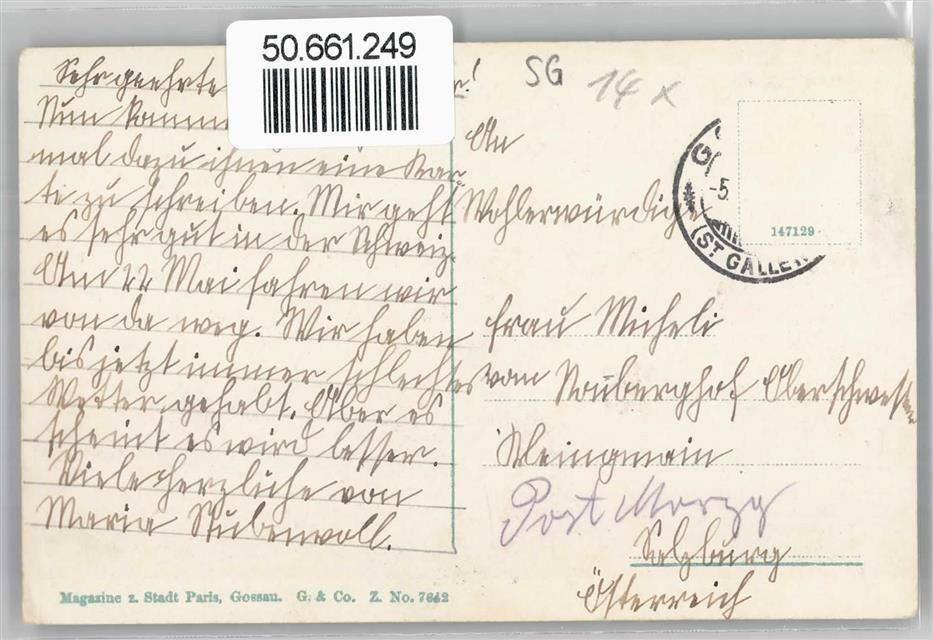 50.661.249
SG 14 x
Sehr geehrte !
Nun komme
mal dazu ihnen eine Kar-
te zu schreiben. Mir geht
es sehr gut in der Schweiz.
Am 22 Mai fahren wir
von da weg. Wir haben
bis jetzt immer schlechtes
Wetter gehabt. Aber es
scheint es wird besser.
Viele herzliche von
Maria Stubenvoll.
An
Wohlerwürdige
Frau Micheli
vom
Oberschwester
Kleingmain
Post Morzg
Salzburg
Österreich
-5
(ST GALLEN
147129
Magazine z. Stadt Paris, Gossau. G. & Co. Z. No. 7642